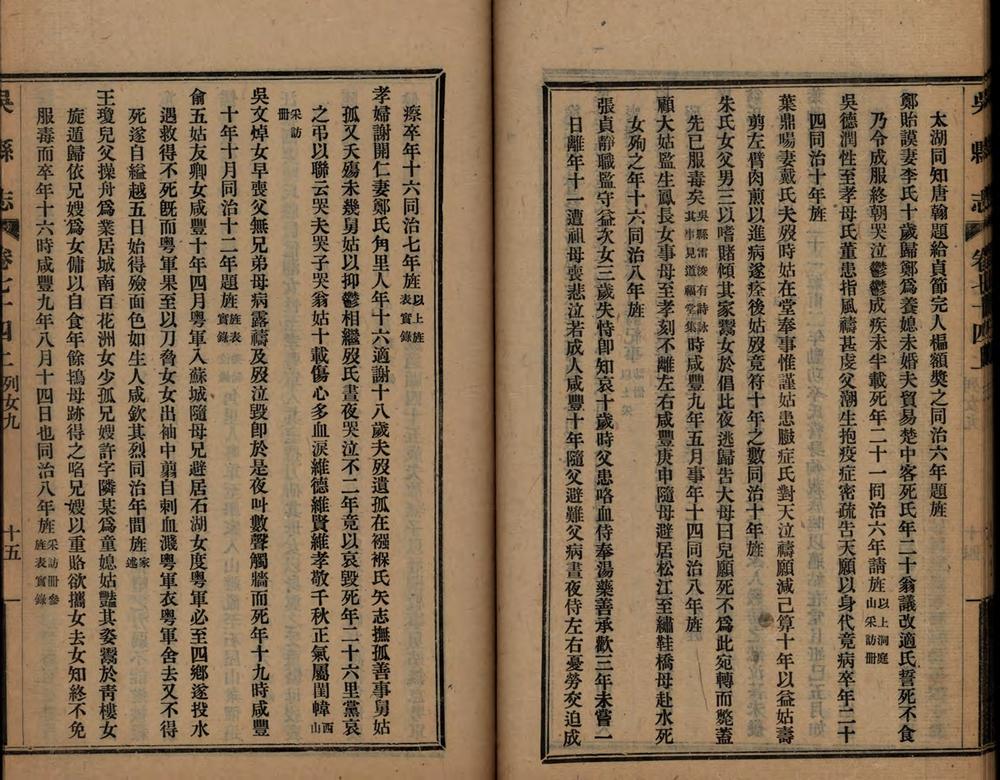 太湖同知唐翰題給貞節完人楄額奬之同治六年題旌
鄭貽謨妻李氏十歲歸鄭爲養媳未婚夫貿易楚中客死氏年二十翁議改適氏誓死不食
乃令成服終朝哭泣鬱鬱成疾未半載死年二十一同治六年請旌以上洞庭山采訪册
吳德潤性至孝母氏董患指風禱甚虔父潮生抱疫症密疏告天願以身代竟病卒年二十
四同治十年旌
葉鼎暘妻戴氏夫歿時姑在堂奉事惟謹姑患臌症氏對天泣禱願減己算十年以益姑壽
剪左臂肉煎以進病遂痊後姑歿竟符十年之數同治十年旌
朱氏女父男三以嗜賭傾其家鬻女於倡比夜逃歸告大母曰兒願死不爲此宛轉而斃蓋
先已服毒矣吳縣雷浚有詩詠其事見道福堂集時咸豐九年五月事年十四同治八年旌
顧大姑監生鳳長女事母至孝刻不離左右咸豐庚申隨母避居松江至繡鞋橋母赴水死
女殉之年十六同治八年旌
張貞靜職監守益次女三歲失恃卽知哀十歲時父患咯血侍奉湯藥善承歡三年未嘗一
日離年十一遭祖母喪悲泣若成人咸豐十年隨父避難父病晝夜侍左右憂勞交迫成
瘵卒年十六同治七年旌以上旌表實錄
孝婦謝開仁妻鄭氏角里人年十六適謝十八歲夫歿遺孤在襁褓氏矢志撫孤善事舅姑
孤又夭殤未幾舅姑以抑鬱相繼歿氏晝夜哭泣不二年竟以哀毀死年二十六里黨哀
之弔以聯云哭夫哭子哭翁姑十載傷心多血淚維德維賢維孝敬千秋正氣屬閨幃西山
采訪册
吳文焯女早喪父無兄弟母病露禱及歿泣毀卽於是夜叫數聲觸牆而死年十九時咸豐
十年十月同治十二年題旌旌表實錄
俞五姑友卿女咸豐十年四月粵軍入蘇城隨母兄避居石湖女度粵軍必至四鄉遂投水
遇救得不死旣而粵軍果至以刀脅女女出袖中翦自刺血濺粵軍衣粵軍舍去又不得
死遂自縊越五日始得殮面色如生人咸欽其烈同治年間旌家述
王瓊兒父操舟爲業居城南百花洲女少孤兄嫂許字隣某爲童媳姑豔其姿鬻於青樓女
旋遁歸依兄嫂爲女傭以自食年餘鴇母跡得之啗兄嫂以重賂欲攜女去女知終不免
服毒而卒年十六時咸豐九年八月十四日也同治八年旌采訪册參旌表實錄
吳縣志 卷七十四上 列女九 十五